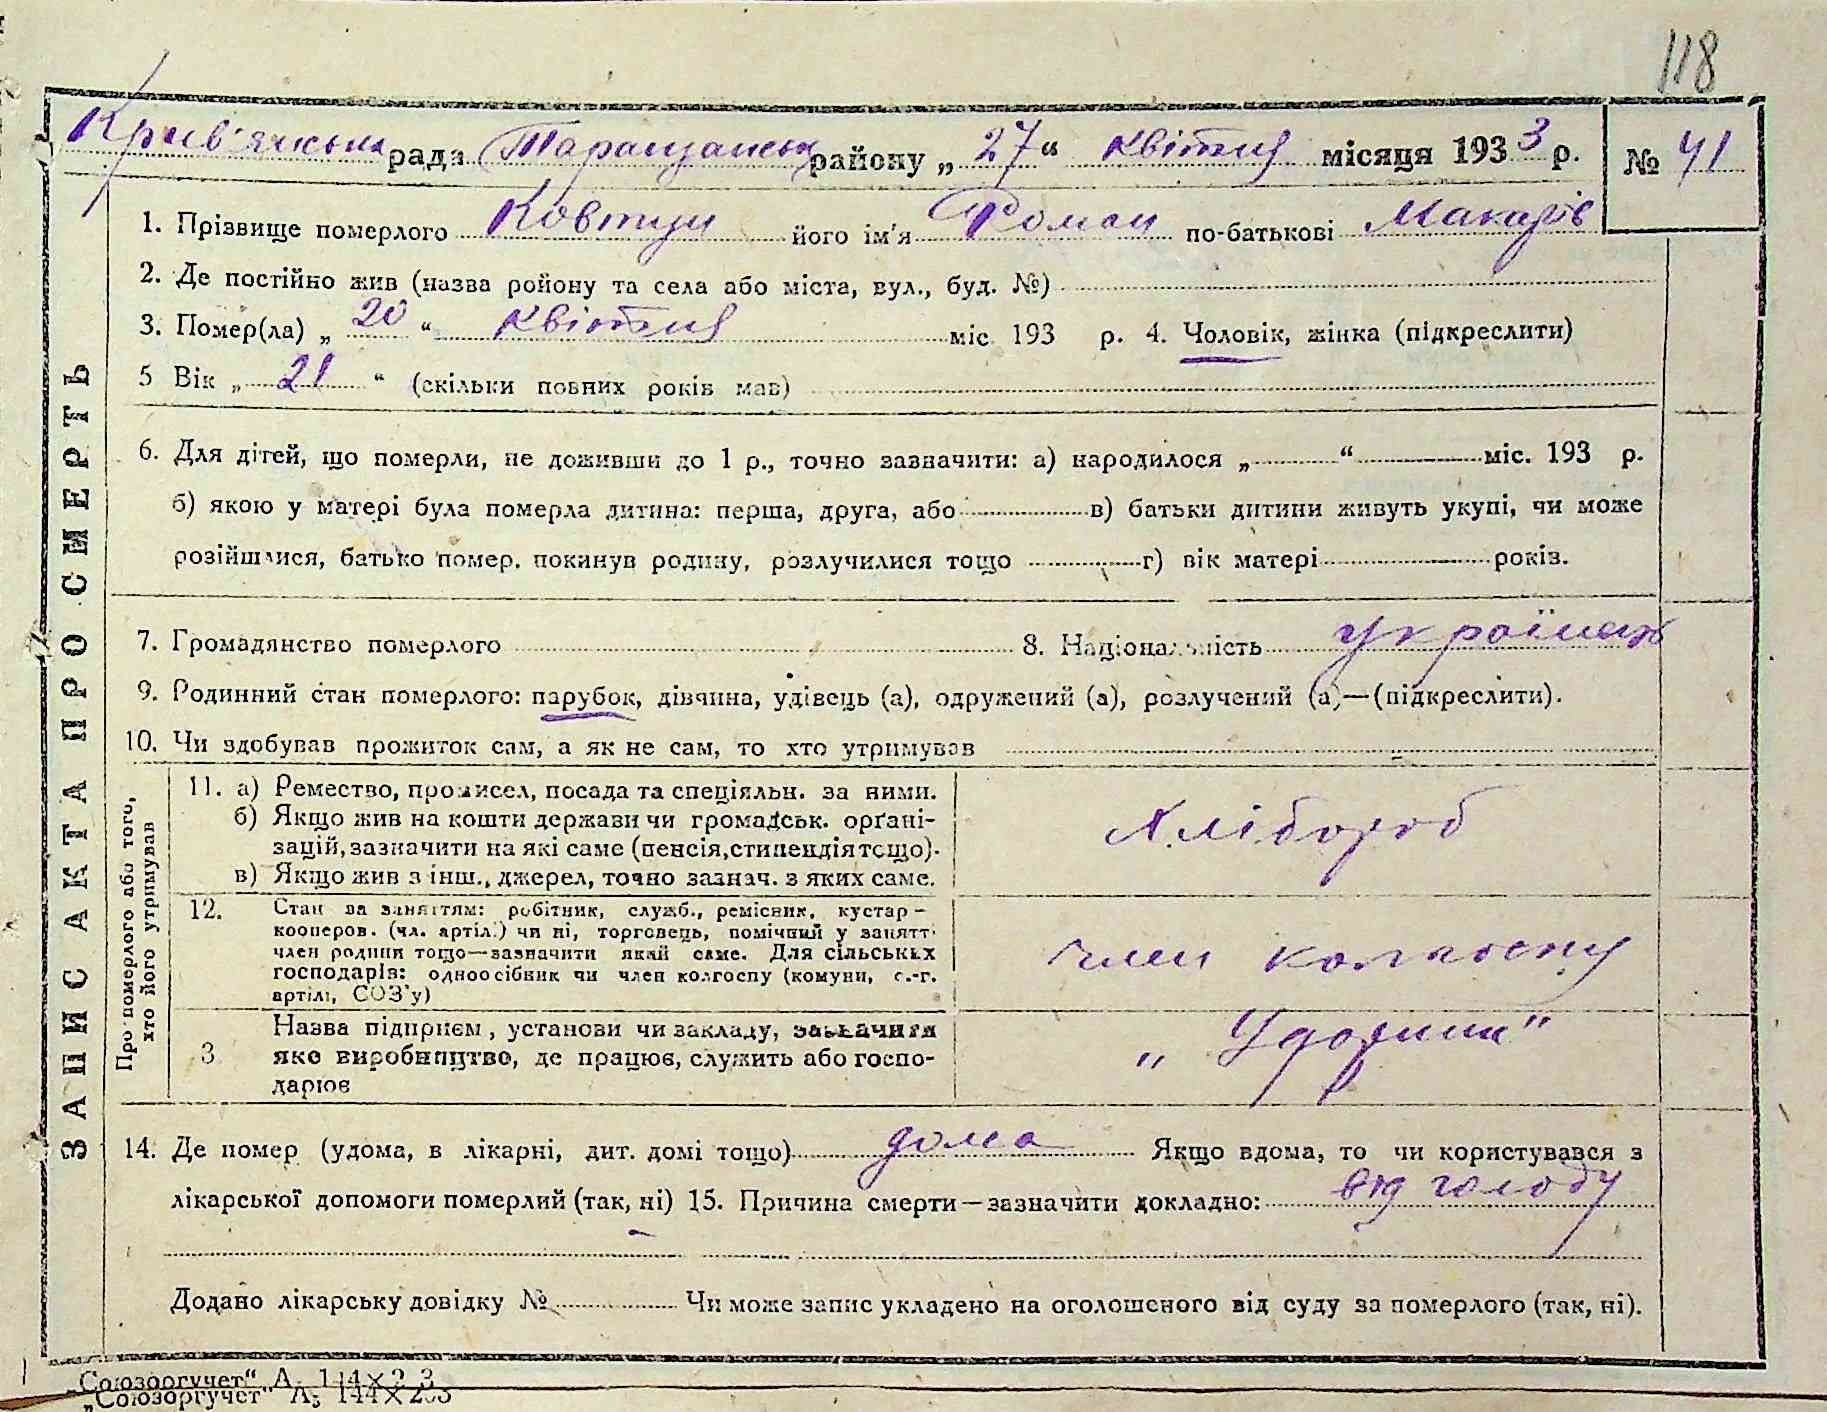 118
Крив'янська рада Таращанськ району „27“ квітня місяця 1933 р. № 41
1. Прізвище померлого Ковтун його ім'я Роман по-батькові Макарів
2. Де постійно жив (назва ройону та села або міста, вул., буд. №)
3. Помер(ла) „ 20 “ квітня міс 193 р. 4. Чоловік, жінка (підкреслити)
5 Вік „ 21 “ (скільки повних років мав)
6. Для дітей, що померли, не доживши до 1 р., точно зазначити: а) народилося „ “ міс. 193 р.
б) якою у матері була померла дитина: перша, друга, або в) батьки дитини живуть укупі, чи може
розійшлися, батько помер. покинув родину, розлучилися тощо г) вік матері років.
7. Громадянство померлого 8. Національність українець
9. Родинний стан померлого: парубок, дівчина, удівець (а), одружений (а), розлучений (а)—(підкреслити).
10. Чи здобував прожиток сам, а як не сам, то хто утримував
ЗАПИС АКТА ПРО СМЕРТЬ
Про померлого або того,
хто його утримував
11. а) Ремество, промисел, посада та спеціяльн. за ними.
б) Якщо жив на кошти держави чи громадськ. орґані-
зацій, зазначити на які саме (пенсія, стипендія тощо).
в) Якщо жив з інш., джерел, точно зазнач. з яких саме.
Хлібороб
12. Стан за заняттям: робітник, служб., ремісник, кустар-
кооперов. (чл. артіл.) чи ні, торговець, помічний у занятт.
член родини тощо—зазначити який саме. Для сільських
господарів: одноосібник чи член колгоспу (комуни, с.-г.
артілі, СОЗ'у)
член колгоспу
3 Назва підприєм, установи чи закладу, зазначити
яке виробництво, де працює, служить або госпо-
дарює
„Ударник"
14. Де помер (удома, в лікарні, дит. домі тощо) дома Якщо вдома, то чи користувався з
лікарської допомоги померлий (так, ні) 15. Причина смерти—зазначити докладно: від голоду
Додано лікарську довідку № Чи може запис укладено на оголошеного від суду за померлого (так, ні).
„Союзоргучет“ А
„Союзоргучет" А₅ 144×203